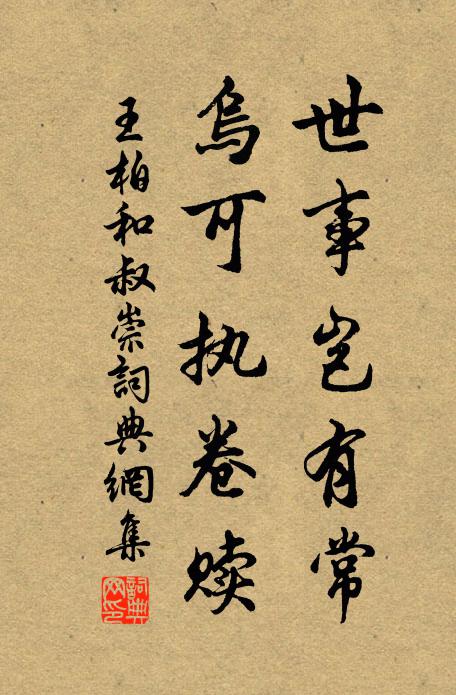 世事岂有常
烏可执卷赎
王柏和叔崇詞典網集
詞典網印